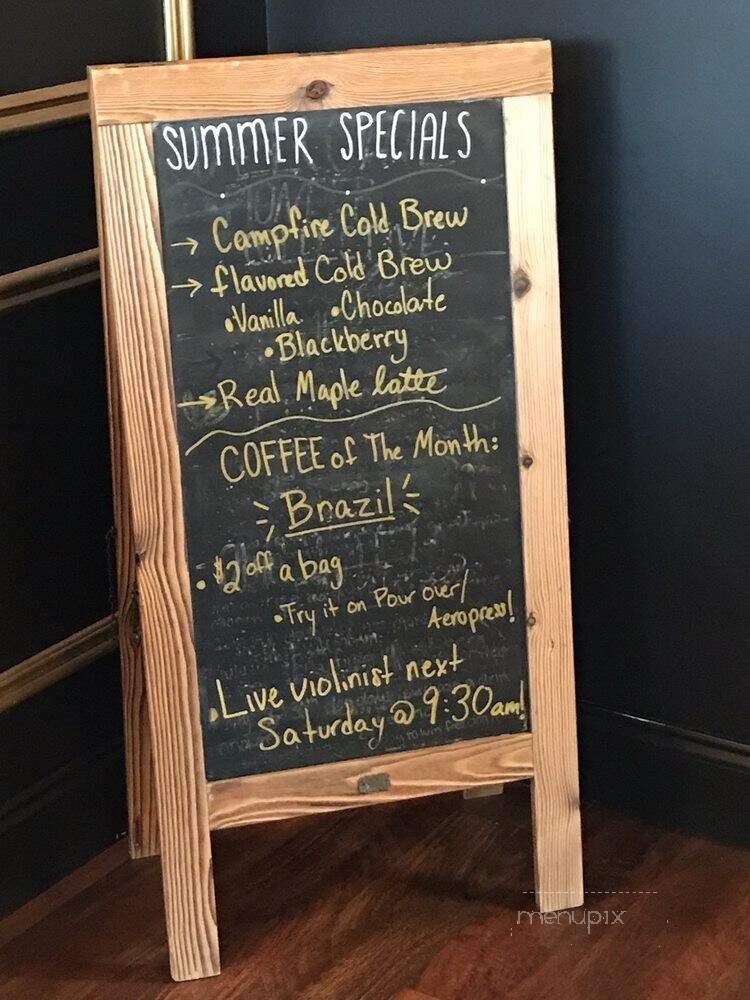 SUMMER SPECIALS
→ Campfire Cold Brew
→ flavored Cold Brew
•Vanilla •Chocolate
•Blackberry
→ Real Maple latte
COFFEE of The Month:
Brazil
• $2 off a bag
•Try it on Pour over/
Aeropress!
•Live violinist next
Saturday @ 9:30am!
menupix